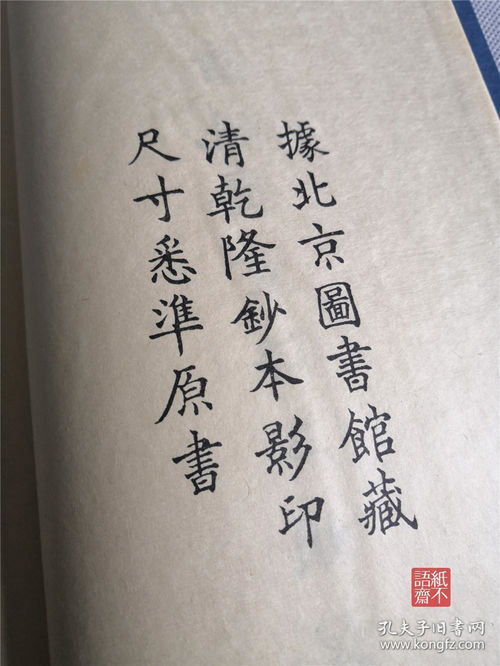 據北京圖書館藏
清乾隆鈔本影印
尺寸悉準原書
紙不
語齋
孔夫子旧书网
www.kongfz.com